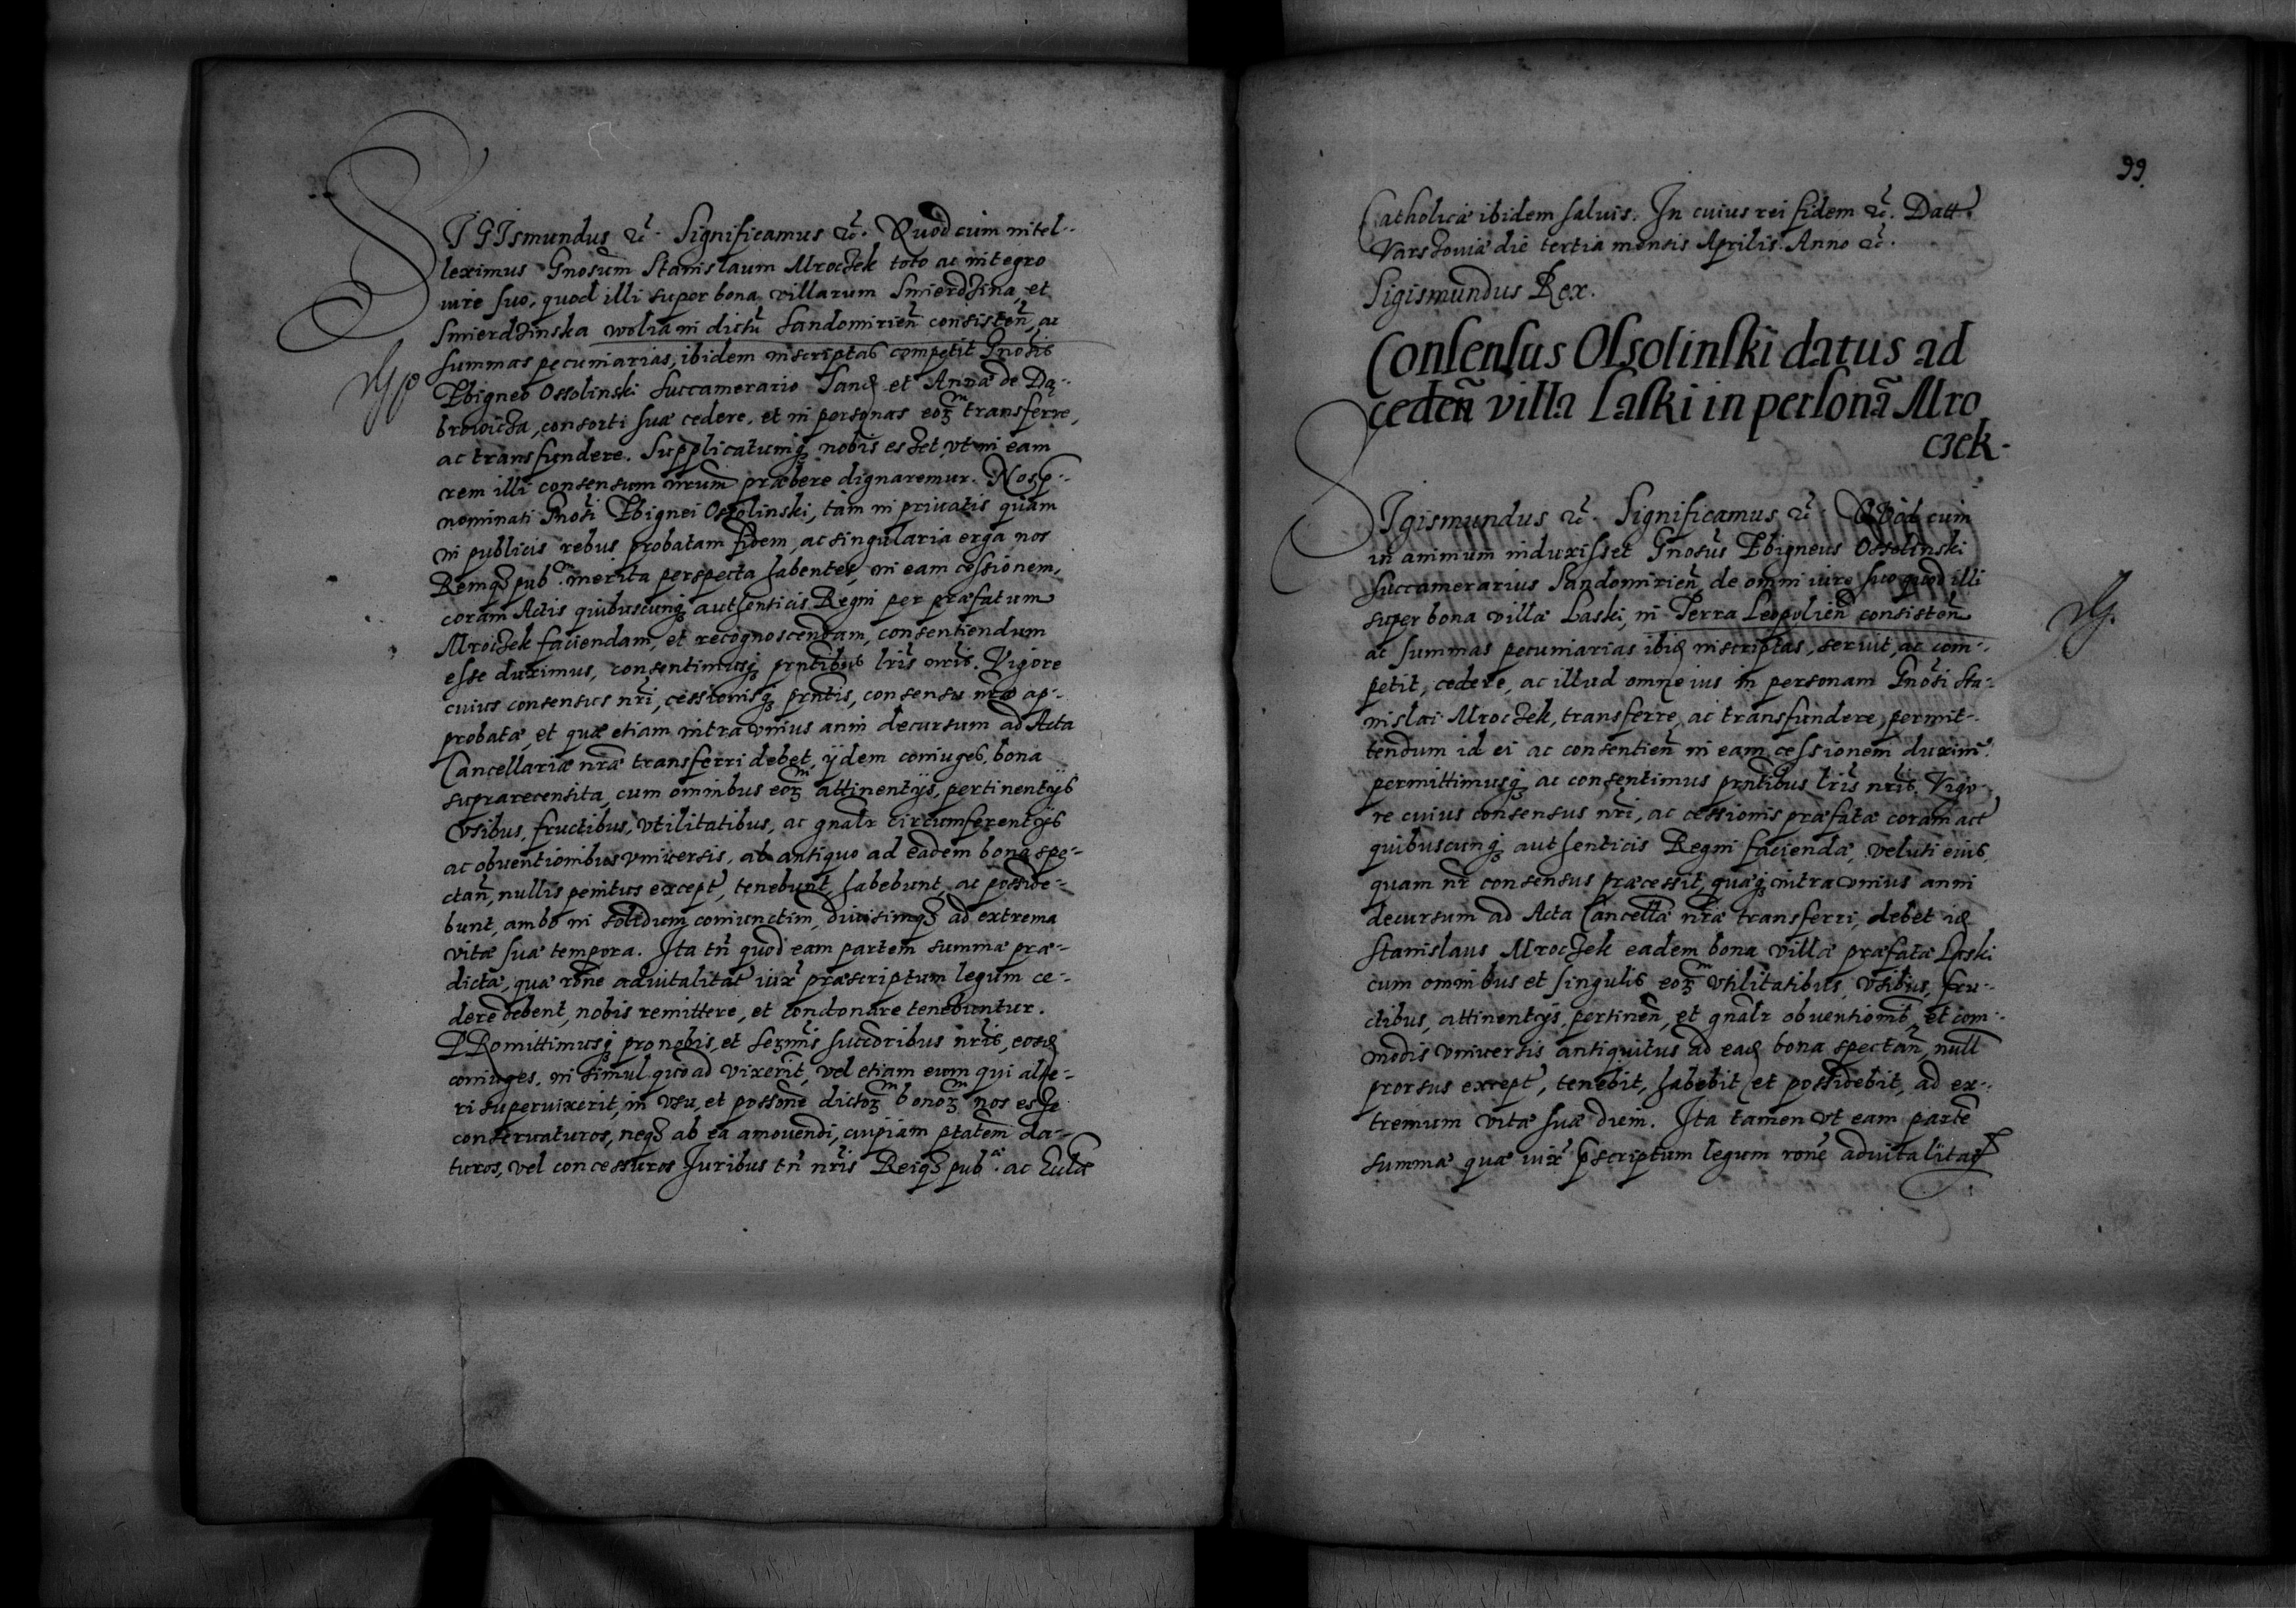 SIGIsmundus etc. Significamus etc. Quod cum intel-
leximus Gnosum Stanislaum Mroczek toto ac integro
iure suo, quod illi super bona villarum Smierdzina, et
Smierdzinska wolia in dictu Sandomirien consisten, ac
summas pecuniarias, ibidem inscriptas competit Gnosis
Zbigneo Ossolinski Succamerario Sand et Annæ de Dą-
browicza, consorti suæ cedere, et in personas eorum transferre,
ac transfundere. Supplicatumq nobis esset, vt in eam
rem illi consensum nrum præbere dignaremur. Nos p-
nominati Gnosi Zbignei Ossolinski, tam in priuatis quam
in publicis rebus probatam fidem, ac singularia erga nos
Remq pub. merita perspecta habentes, in eam cessionem,
coram Actis quibuscunq authenticis Regni per præfatum
Mroczek faciendam, et recognoscendam, consentiendum
esse duximus, consentimusq prntibus lris nris. Vigore
cuius consensus nri, cessionisq prntis, consensu nro ap-
probatæ, et quæ etiam intra vnius anni decursum ad Acta
Cancellariæ nræ transferri debet, ijdem coniuges, bona
suprarecensita, cum omnibus eorum attinentijs, pertinentijs
vsibus, fructibus, vtilitatibus, ac gnalr circumferentijs
ac obuentionibus vniuersis, ab antiquo ad eadem bona spe-
ctan, nullis penitus except, tenebunt, habebunt, ac posside-
bunt, ambo in solidum coniunctim, diuisimq ad extrema
vitæ suæ tempora. Ita tn quod eam partem summæ præ-
dictæ, quæ rone aduitalitat iux præscriptum legum ce-
dere debent, nobis remittere, et condonare tenebuntur.
PRomittimusq pro nobis, et Sermis succoribus nris, eosd
coniuges, in simul quoad vixerint, vel etiam eum qui alte-
ri superuixerit, in vsu, et possone dictorum bonorum nos esse
conseruaturos, neq ab ea amouendi, cuipiam ptatem da-
turos, vel concessuros Juribus tn nris Reiq pub. ac Eclæ
99.
Catholicæ ibidem saluis. In cuius rei fidem etc. Datt
Varszouiæ die tertia mensis Aprilis Anno etc.
Sigismundus Rex.
Consensus Ossolinski datus ad
ceden villa Laski in personã Mro
czek.
SIgismundus etc. Significamus etc. Quod cum
in animum induxisset Gnosus Zbigneus Ossolinski
Succamerarius Sandomirien de omni iure suo quod illi
super bona villæ Laski, in Terra Leopolien consisten
ac summas pecuniarias ibid inscriptas, seruit, ac com-
petit, cedere, ac illud omne ius in personam Gnosi Sta-
nislai Mroczek, transferre, ac transfundere, permit-
tendum id ei ac consentien in eam cessionem duxim
permittimusq ac consentimus prntibus lris nris. Vigo-
re cuius consensus nri, ac cessionis præfatæ coram act
quibuscunq authenticis Regni faciendæ, veluti eius,
quam nr consensus præcessit, quæq intra vnius anni
decursum ad Acta Cancella nræ transferri, debet id
Stanislaus Mroczek eadem bona villæ præfatæ Laski
cum omnibus et singulis eorum vtilitatibus, vsibus, fru-
ctibus, attinentijs, pertinen, et gnalr obuentionib, et com-
modis vniuersis antiquitus ad ead bona spectan, null
prorsus except, tenebit, habebit et possidebit, ad ex-
tremum vitæ suæ diem. Ita tamen vt eam parte
summæ quæ iux pscriptum legum rone aduitalitat